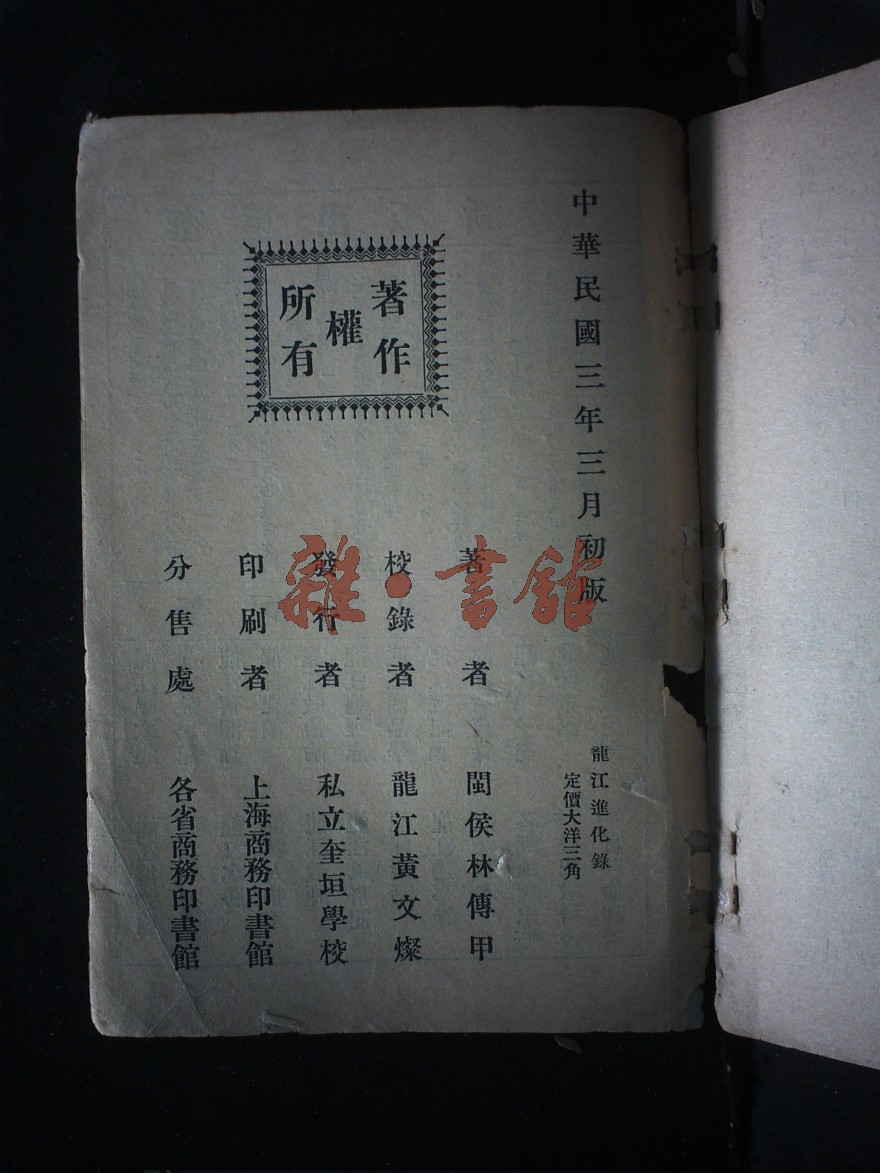 中華民國三年三月初版
龍江進化錄
定價大洋三角
著作權所有
著者 閩侯林傳甲
校錄者 龍江黃文燦
發行者 私立奎垣學校
印刷者 上海商務印書館
分售處 各省商務印書館
雜·書館